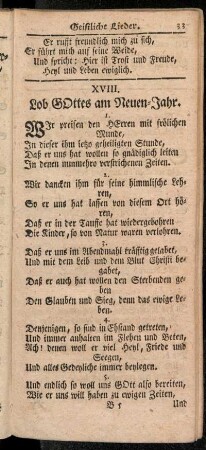 Geistliche Lieder. 33
Er rufft freundlich mich zu sich,
Er führt mich auf seine Weide,
Und spricht: Hier ist Trost und Freude,
Heyl und Leben ewiglich.
XVIII.
Lob GOttes am Neuen-Jahr.
1.
WJr preisen den HErren mit frölichen
Munde,
Jn dieser ihm ietzo geheiligten Stunde,
Daß er uns hat wollen so gnädiglich leiten
Jn denen nunmehro verstrichenen Zeiten.
2.
Wir dancken ihm für seine himmlische Leh-
ren,
So er uns hat lassen von diesem Ort hö-
ren,
Daß er in der Tauffe hat wiedergebohren
Die Kinder, so von Natur waren verlohren.
3.
Daß er uns im Abendmahl kräfftig gelabet,
Und mit dem Leib und dem Blut Christi be-
gabet,
Daß er auch hat wollen den Sterbenden ge-
ben
Den Glauben und Sieg, denn das ewige Le-
ben.
4.
Denjenigen, so sind in Ehstand getreten,
Und immer anhalten im Flehen und Beten,
Ach! denen woll er viel Heyl, Friede und
Seegen,
Und alles Gedeyliche immer beylegen.
5.
Und endlich so woll uns GOtt also bereiten,
Wie er uns will haben zu ewigen Zeiten,
B 5 Und